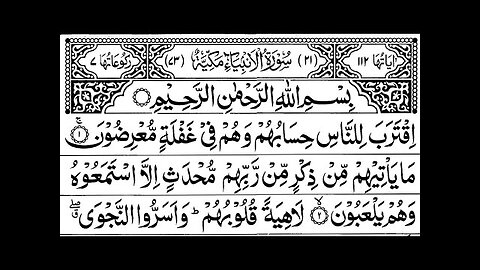 اٰیَاتُهَا ١١٢ (٢١) سُوْرَةُ الْاَنْۢبِیَآءِ مَكِّیَّةٌ (٧٣) رُكُوْعَاتُهَا ٧
بِسْمِ اللّٰهِ الرَّحْمٰنِ الرَّحِیْمِ
اِقْتَرَبَ لِلنَّاسِ حِسَابُهُمْ وَهُمْ فِیْ غَفْلَةٍ مُّعْرِضُوْنَ ۚ ١
مَا یَاْتِیْهِمْ مِّنْ ذِكْرٍ مِّنْ رَّبِّهِمْ مُّحْدَثٍ اِلَّا اسْتَمَعُوْهُ
وَهُمْ یَلْعَبُوْنَ ۙ ٢ لَاهِیَةً قُلُوْبُهُمْ ؕ وَاَسَرُّوا النَّجْوَی ۖۗ